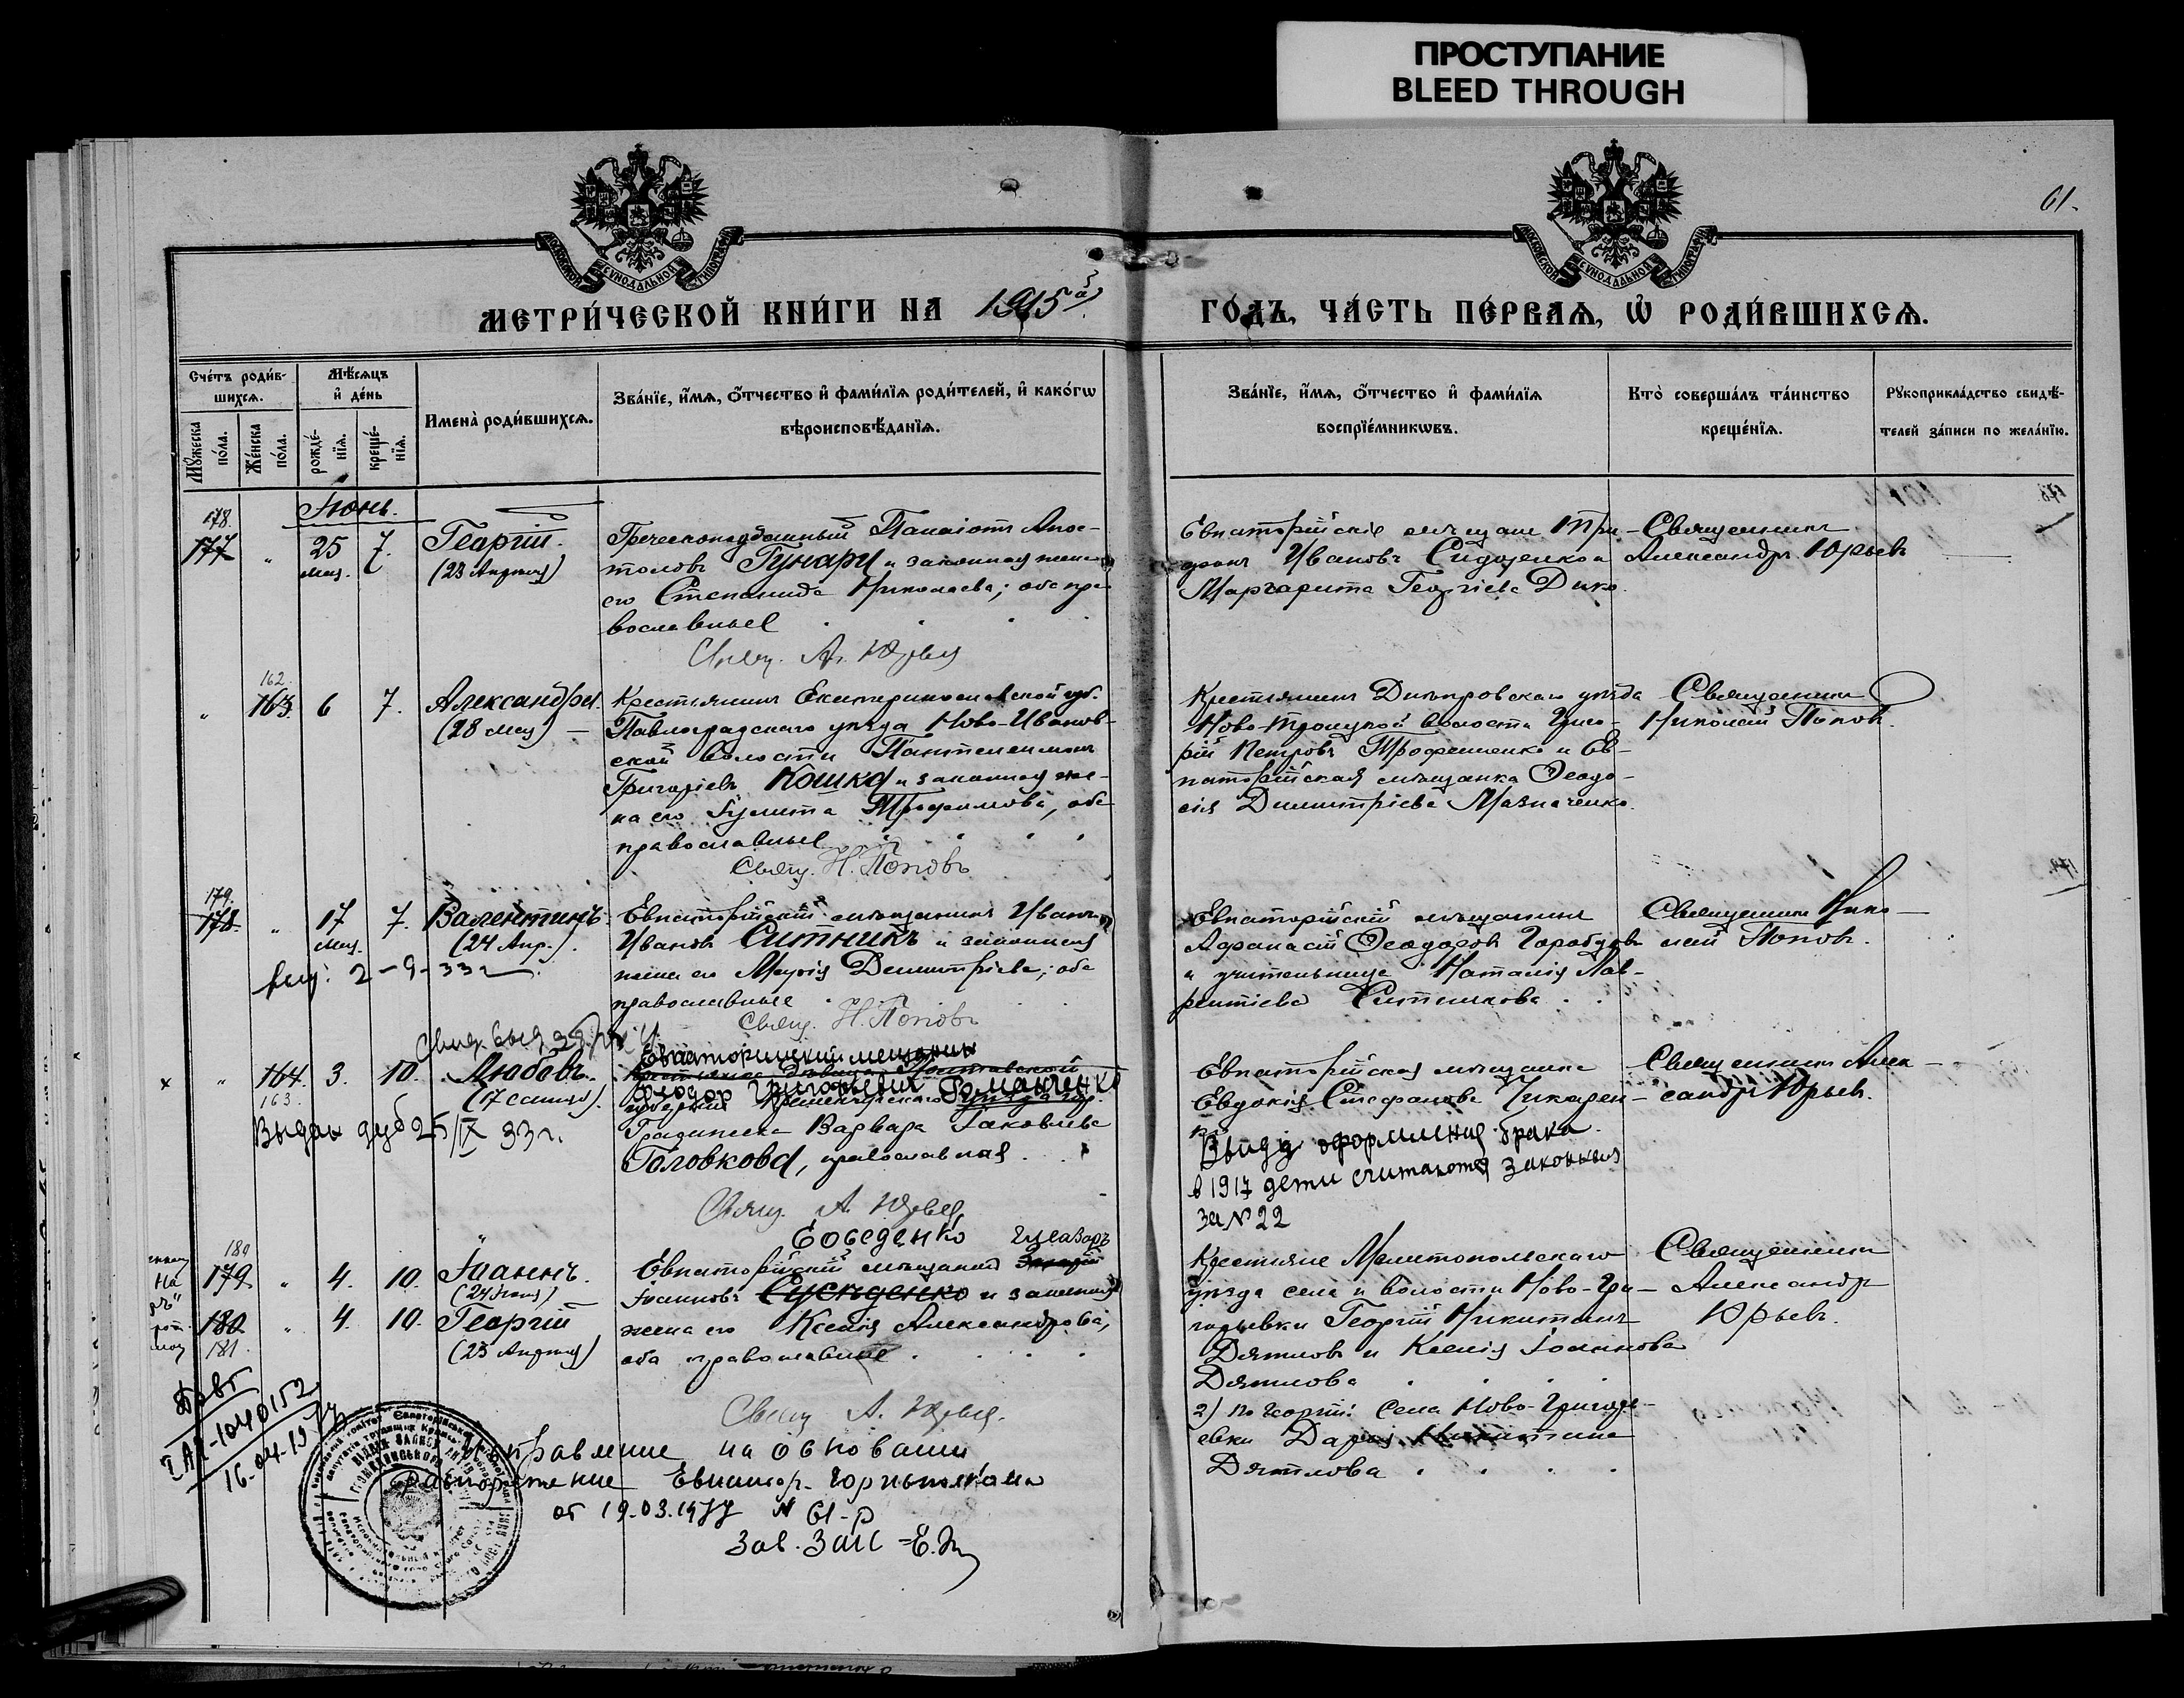 ПРОСТУПАНИЕ
BLEED THROUGH
61.
МОСКОВСКОЙ СѴНОДАЛЬНОЙ ТИПОГРАФІИ
МОСКОВСКОЙ СѴНОДАЛЬНОЙ ТИПОГРАФІИ
МЕТРИ́ЧЕСКОЙ КНИ́ГИ НА 1915й
ГО́ДЪ, ЧА́СТЬ ПЕ́РВАѦ, Ѡ҆ РОДИ́ВШИХСѦ.
Сче́тъ роди́в-
шихсѧ.
Мꙋ́жеска по́ла.
Же́нска по́ла.
Мѣ́сѧцъ
и҆ де́нь
рожде́-
нїѧ.
креще́-
нїѧ.
Имена̀ роди́вшихсѧ.
Зва́нїе, и҆́мѧ, ѻ҆́тчество и҆ фами́лїѧ роди́телей, и҆ како́гѡ
вѣроисповѣ́данїѧ.
Зва́нїе, и҆́мѧ, ѻ҆́тчество и҆ фами́лїѧ
воспрїе́мникѡвъ.
Кто̀ соверша́лъ та́инство
креще́нїѧ.
Рꙋкоприкла́дство свидѣ́-
телей за́писи по жела́нїю.
Іюнь.
178.
177 " 25 7. Георгій.
мая. (23 Апрѣля)
Греческоподданный Панаіотъ Апос-
толовъ Гунари и законная жена
его Степанида Николаева; оба пра-
вославные
Свящ. А. Юрьев
Евпаторійскіе мѣщане Три-
фонъ Ивановъ Сидоренко и
Маргарита Георгіева Дико.
Священникъ
Александръ Юрьевъ
162.
" 163. 6 7. Александра.
(28 мая) —
Крестьянинъ Екатеринославской губ.
Павлоградскаго уѣзда Ново-Иванов-
ской волости Пантелеимонъ
Григоріевъ Кошка и законная же-
на его Іулита Трофимова, оба
православные
Свящ. Н. Поповъ
Крестьянинъ Днѣпровскаго уѣзда
Ново-Троицкой волости Григо-
рій Петровъ Трофименко и Ев-
паторійская мѣщанка Ѳеодо-
сія Димитріева Мазниченко.
Священникъ
Николай Поповъ.
179.
178. " 17 7. Валентинъ.
мая. (24 Апр.).
2-9-33 г.
Евпаторійскій мѣщанинъ Иванъ
Ивановъ Ситникъ и законная
жена его Марія Димитріева; оба
православные
Свящ. Н. Поповъ
Евпаторійскій мѣщанинъ
Аѳанасій Ѳеодоровъ
и учительница Наталія Лав-
рентіева Ситникова
Священникъ Нико-
лай Поповъ.
Евпаторийский мещанин
Федор Григорьевич Романченко
х " 164. 3. 10. Любовь.
163. (17 сент.).
Выдан дуб 25/IX 33 г.
Крестьянка дѣвица Полтавской
губерніи Кременчугскаго уѣзда гор.
Градижска Варвара Іаковлева
Головкова, православная
Свящ. А. Юрьев
Евпаторійская мѣщанка
Евдокія Стефанова
Ввиду оформления брака
в 1917 дети считаются законными
за № 22
Священникъ Алек-
сандръ Юрьевъ.
180
179. " 4. 10. Іоаннъ.
(24 Іюня)
180. " 4. 10. Георгій
181. (23 Апрѣля)
Евпаторійскій мѣщанинъ
Іоанновъ и законная
жена его Ксенія Александрова,
оба православные
Свящ А. Юрьев.
Крестьяне Мелитопольскаго
уѣзда села и волости Ново-Гри-
горьевки Георгій Никитинъ
Дятловъ и Ксенія Іоаннова
Дятлова
2) по Георгій: Села Ново-Григорь-
евки Дарья Никитина
Дятлова
Священникъ
Александръ
Юрьевъ.
16-04-1977
Исправление на основании
распоряжение Евпатор. Горисполкома
от 19.03.1977 № 61-р
Зав. ЗАГС